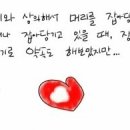 와 상의해서 머리를 잡아당
나 잡아당기고 있을 때, 잠
기로 약속도 해보았지만...